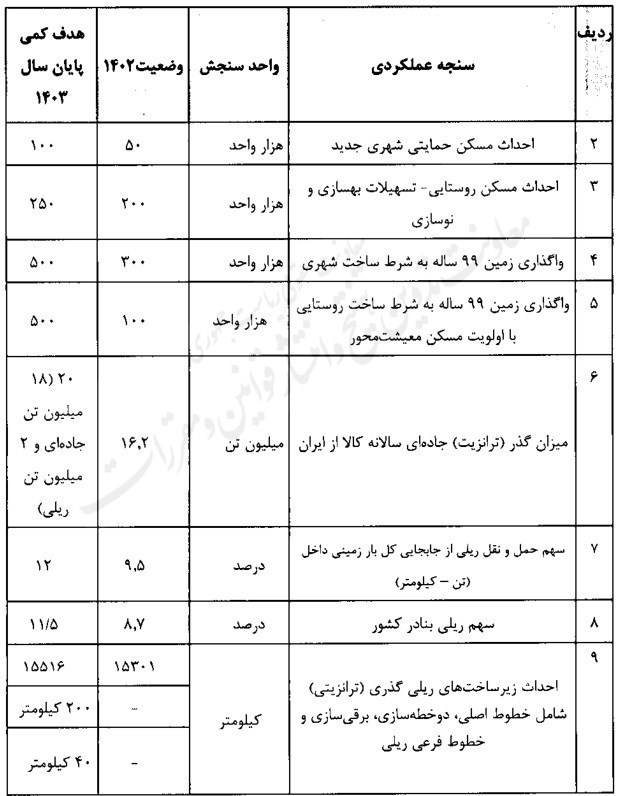 ردیف
سنجه عملکردی
واحد سنجش
وضعیت۱۴۰۲
هدف کمی
پایان سال
۱۴۰۳
۲
احداث مسکن حمایتی شهری جدید
هزار واحد
۵۰
۱۰۰
۳
احداث مسکن روستایی- تسهیلات بهسازی و
نوسازی
هزار واحد
۲۰۰
۲۵۰
۴
واگذاری زمین ۹۹ ساله به شرط ساخت شهری
هزار واحد
۳۰۰
۵۰۰
۵
واگذاری زمین ۹۹ ساله به شرط ساخت روستایی
با اولویت مسکن معیشت‌محور
هزار واحد
۱۰۰
۵۰۰
۶
میزان گذر (ترانزیت) جاده‌ای سالانه کالا از ایران
میلیون تن
۱۶,۲
۲۰ (۱۸
میلیون تن
جاده‌ای و ۲
میلیون تن
ریلی)
۷
سهم حمل و نقل ریلی از جابجایی کل بار زمینی داخل
(تن – کیلومتر)
درصد
۹,۵
۱۲
۸
سهم ریلی بنادر کشور
درصد
۸,۷
۱۱/۵
۹
احداث زیرساخت‌های ریلی گذری (ترانزیتی)
شامل خطوط اصلی، دوخطه‌سازی، برقی‌سازی و
خطوط فرعی ریلی
کیلومتر
۱۵۳۰۱
۱۵۵۱۶
-
۲۰۰ کیلومتر
-
۴۰ کیلومتر
معاونت تدوین، تنقیح و انتشار قوانین و مقررات